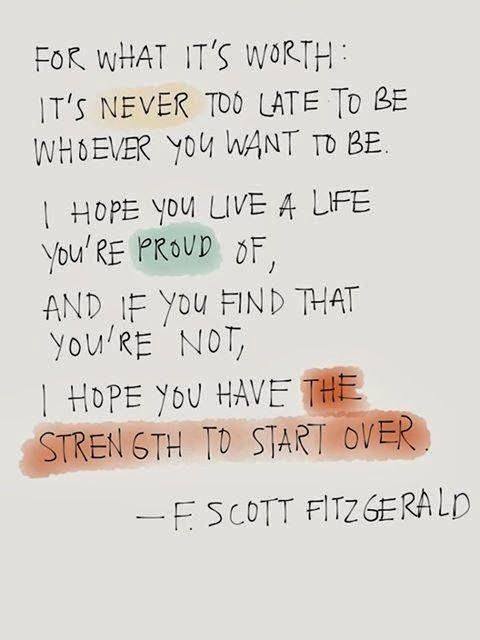 FOR WHAT IT'S WORTH:
IT'S NEVER TOO LATE TO BE
WHOEVER YOU WANT TO BE.
I HOPE YOU LIVE A LIFE
YOU'RE PROUD OF,
AND IF YOU FIND THAT
YOU'RE NOT,
I HOPE YOU HAVE THE
STRENGTH TO START OVER.
—F. SCOTT FITZGERALD